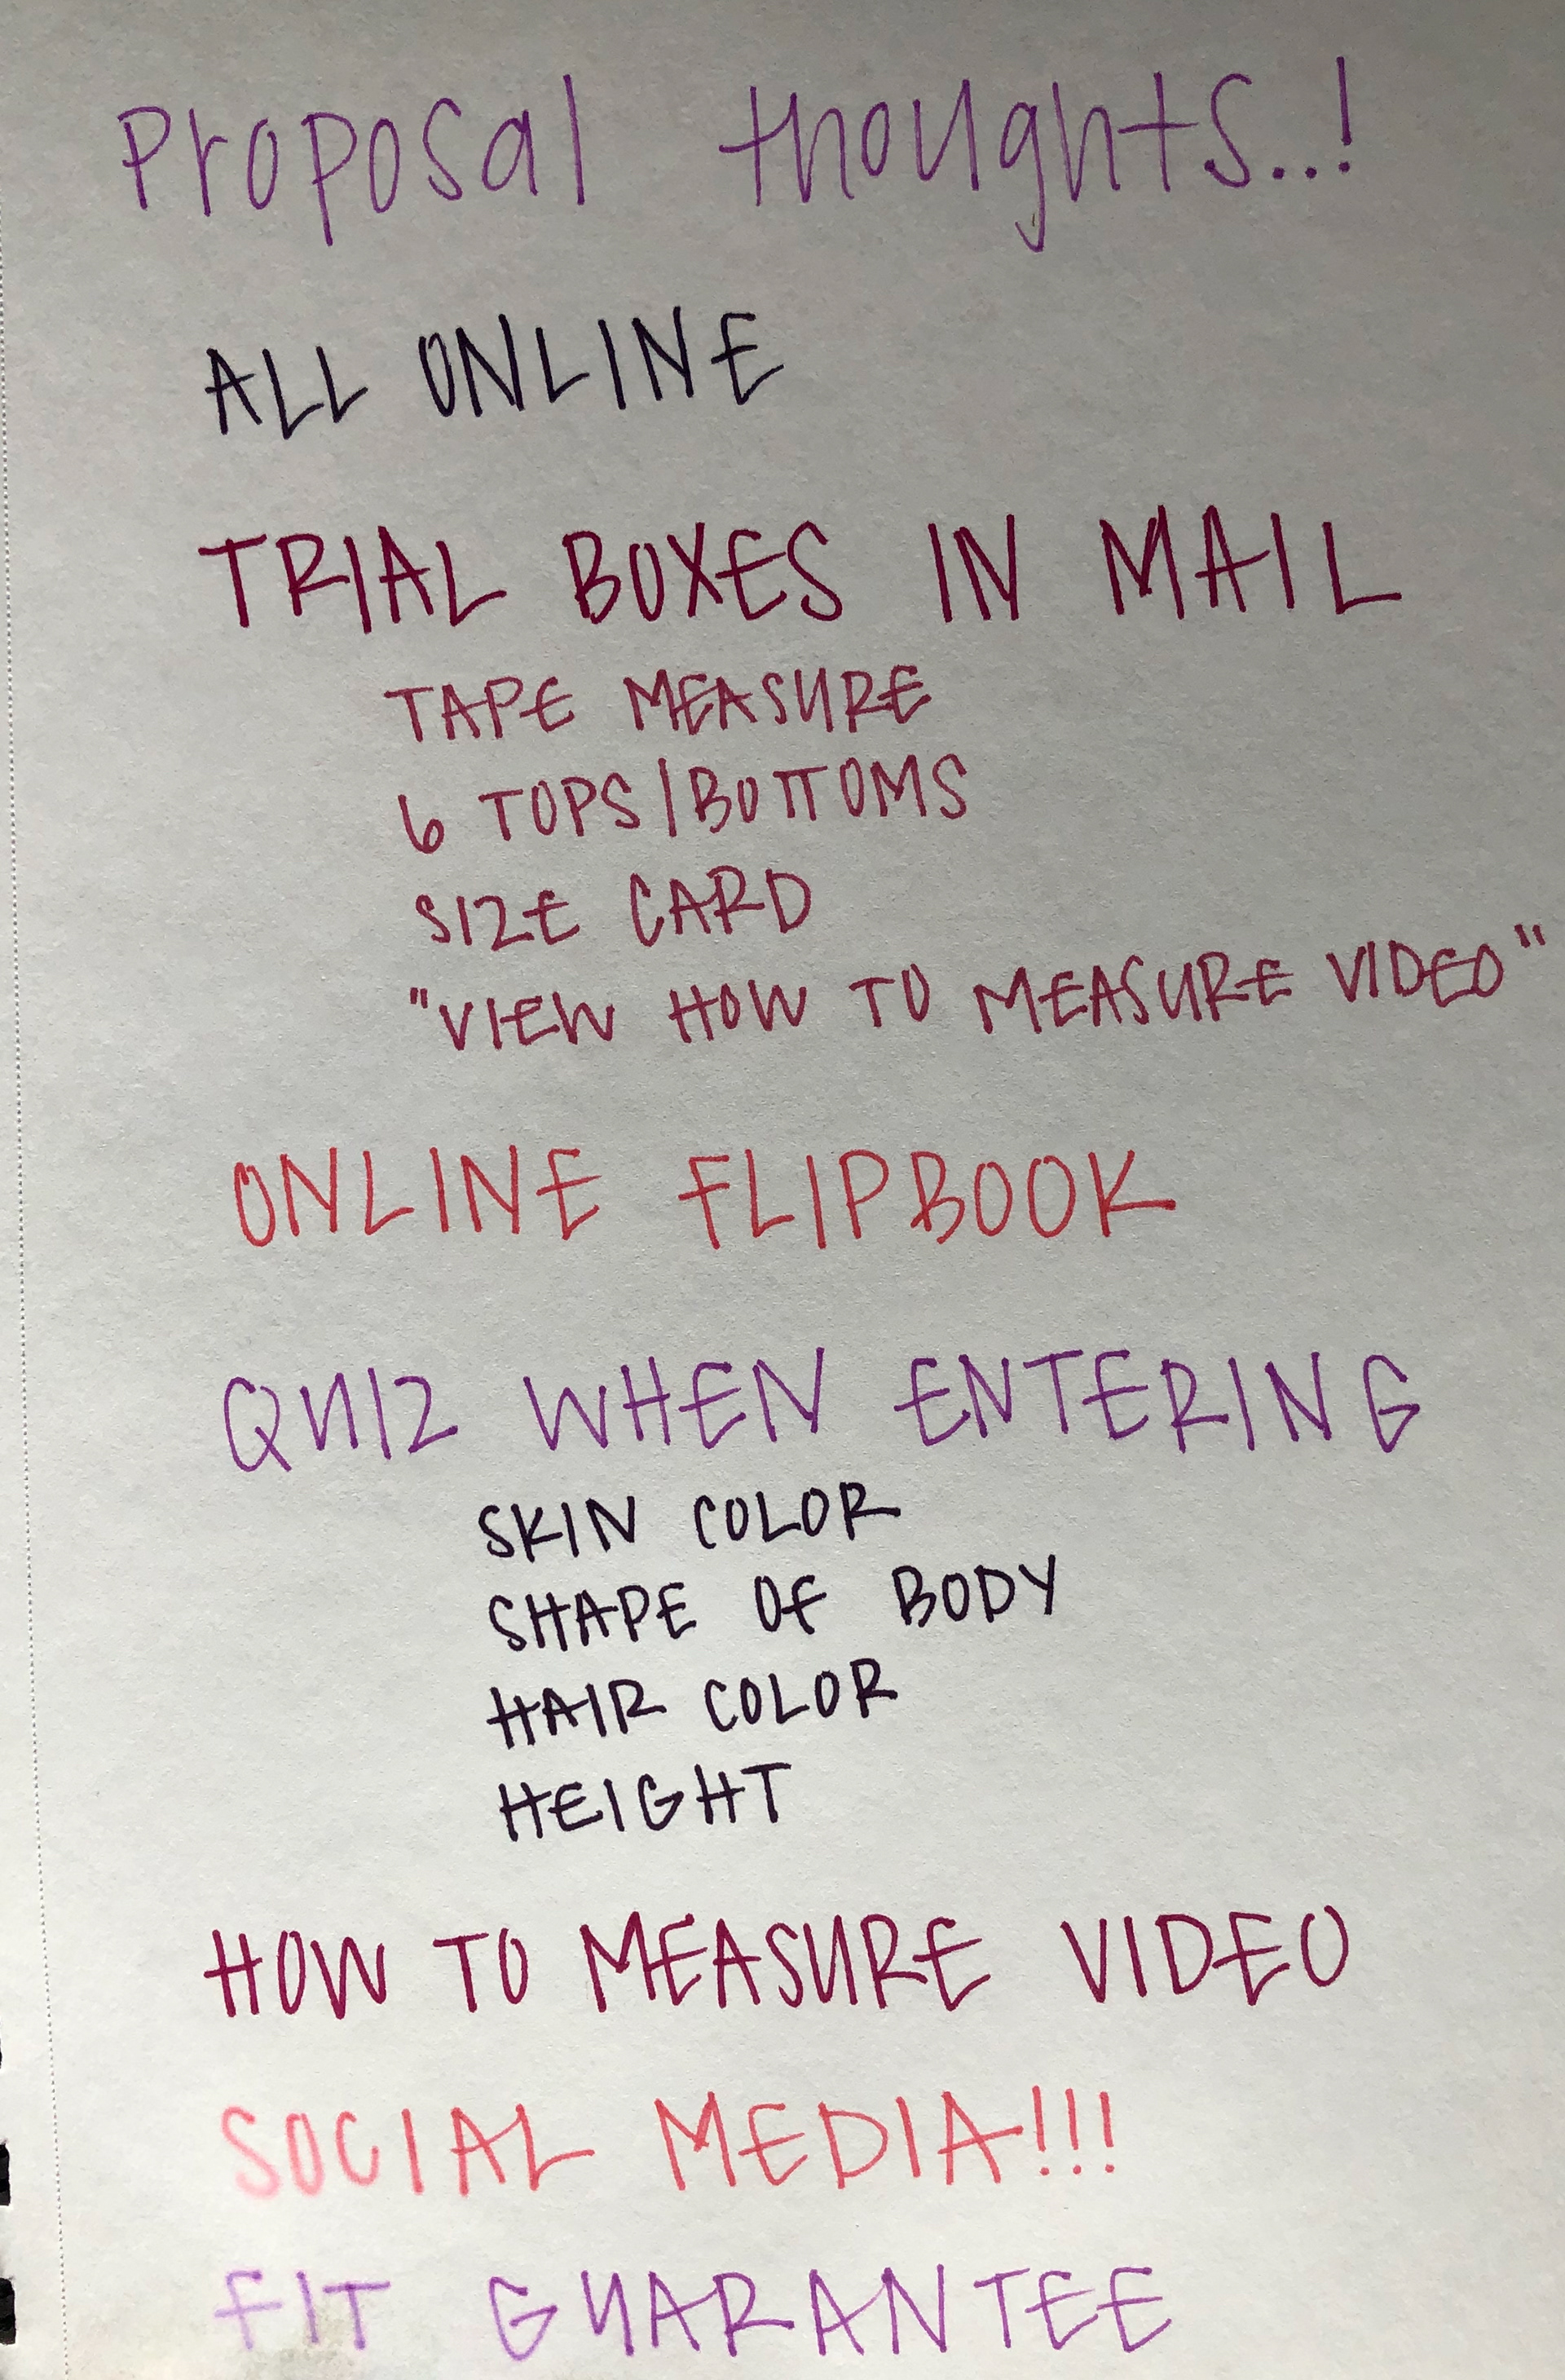 Proposal thoughts..!
ALL ONLINE
TRIAL BOXES IN MAIL
TAPE MEASURE
6 TOPS/BOTTOMS
SIZE CARD
"VIEW HOW TO MEASURE VIDEO"
ONLINE FLIPBOOK
QUIZ WHEN ENTERING
SKIN COLOR
SHAPE OF BODY
HAIR COLOR
HEIGHT
HOW TO MEASURE VIDEO
SOCIAL MEDIA!!!
FIT GUARANTEE